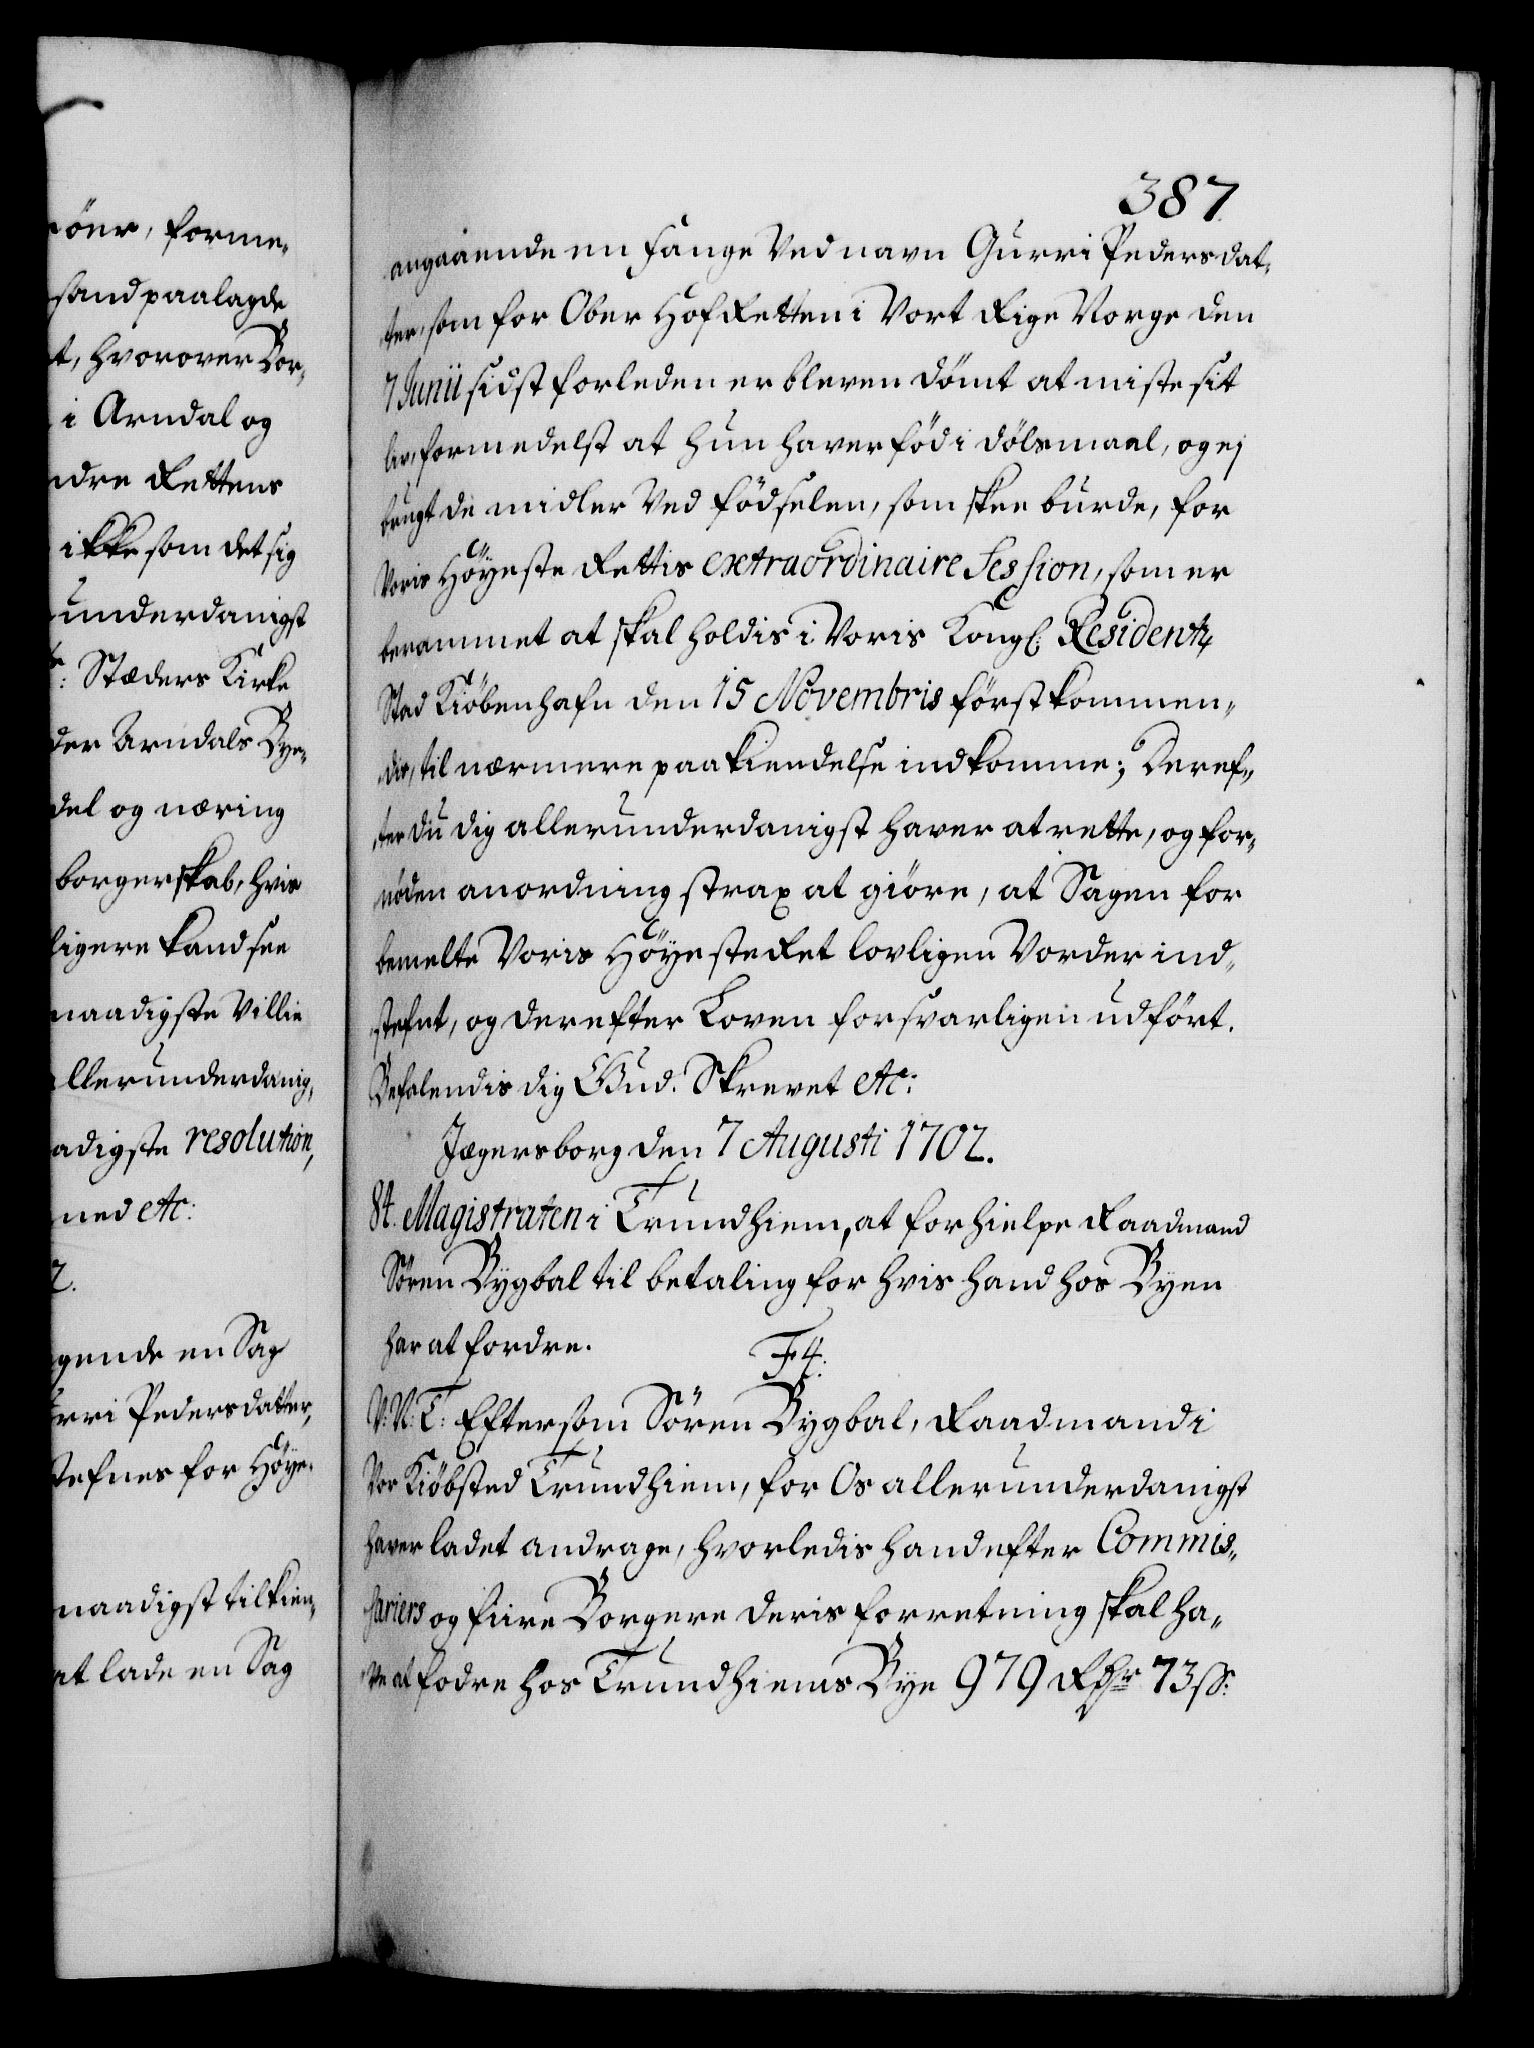 öer, forme-
sand paalagde
t, hvorover Bor-
i Arndal og
ndre Rettens
ikke som det sig
underdanigst
: Stæders Kirke
der Arndals Bye-
del og næring
borgerskab, hvis
ligere kand see
naadigste Villie
allerunderdanig,
adigste resolution,
ned etc:
2.
gende en Sag
urri Pedersdatter,
tefnes for Høye-
naadigst tilkien-
at lade en Sag
387
angaaende en Fange Ved navn Gurri Pedersdat-
ter, som for Ober HofRetten i Vort Rige Norge den
7 Junii sidst forleden er bleven dömt at miste sit
liv, formedelst at hun haver föd i dölsmaal, og ej
brugt de midler Ved födselen, som skee burde, for
Voris Höyeste Rettis extraordinaire Session, som er
berammet at skal holdis i Voris Kongl: Residentz
Stad Kiöbenhafn den 15 Novembris först kommen-
dis, til nærmere paakiendelse indkomme; Deref-
ter du dig allerunderdanigst haver at rette, og for-
nöden anordning strax at giöre, at Sagen for
bemelte Voris Höyeste Ret lovligen Vorder ind-
stefnt, og derefter Loven forsvarligen udfört.
Befalendis dig Gud. Skrevet etc:
Jægersborg den 7 Augusti 1702.
St. Magistraten i Trundhiem, at forhielpe Raadmand
Sören Bygbal til betaling for hvis hand hos Byen
har at fordre.
F4.
V: N: T: Eftersom Sören Bygbal, Raadmand i
Vor Kiöbsted Trundhiem, for Os allerunderdanigst
haver ladet andrage, hvorledis hand efter Commis-
sariers og fiire Borgere deris forretning skal ha-
ve at fodre hos Trundhiems Bye 979 Rdr 73 ss: